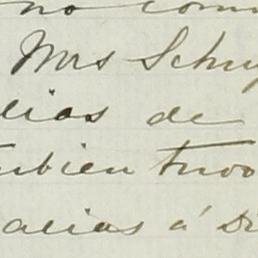 no com
Mrs Schuy
dias de
mbien tuvo
acias á Di